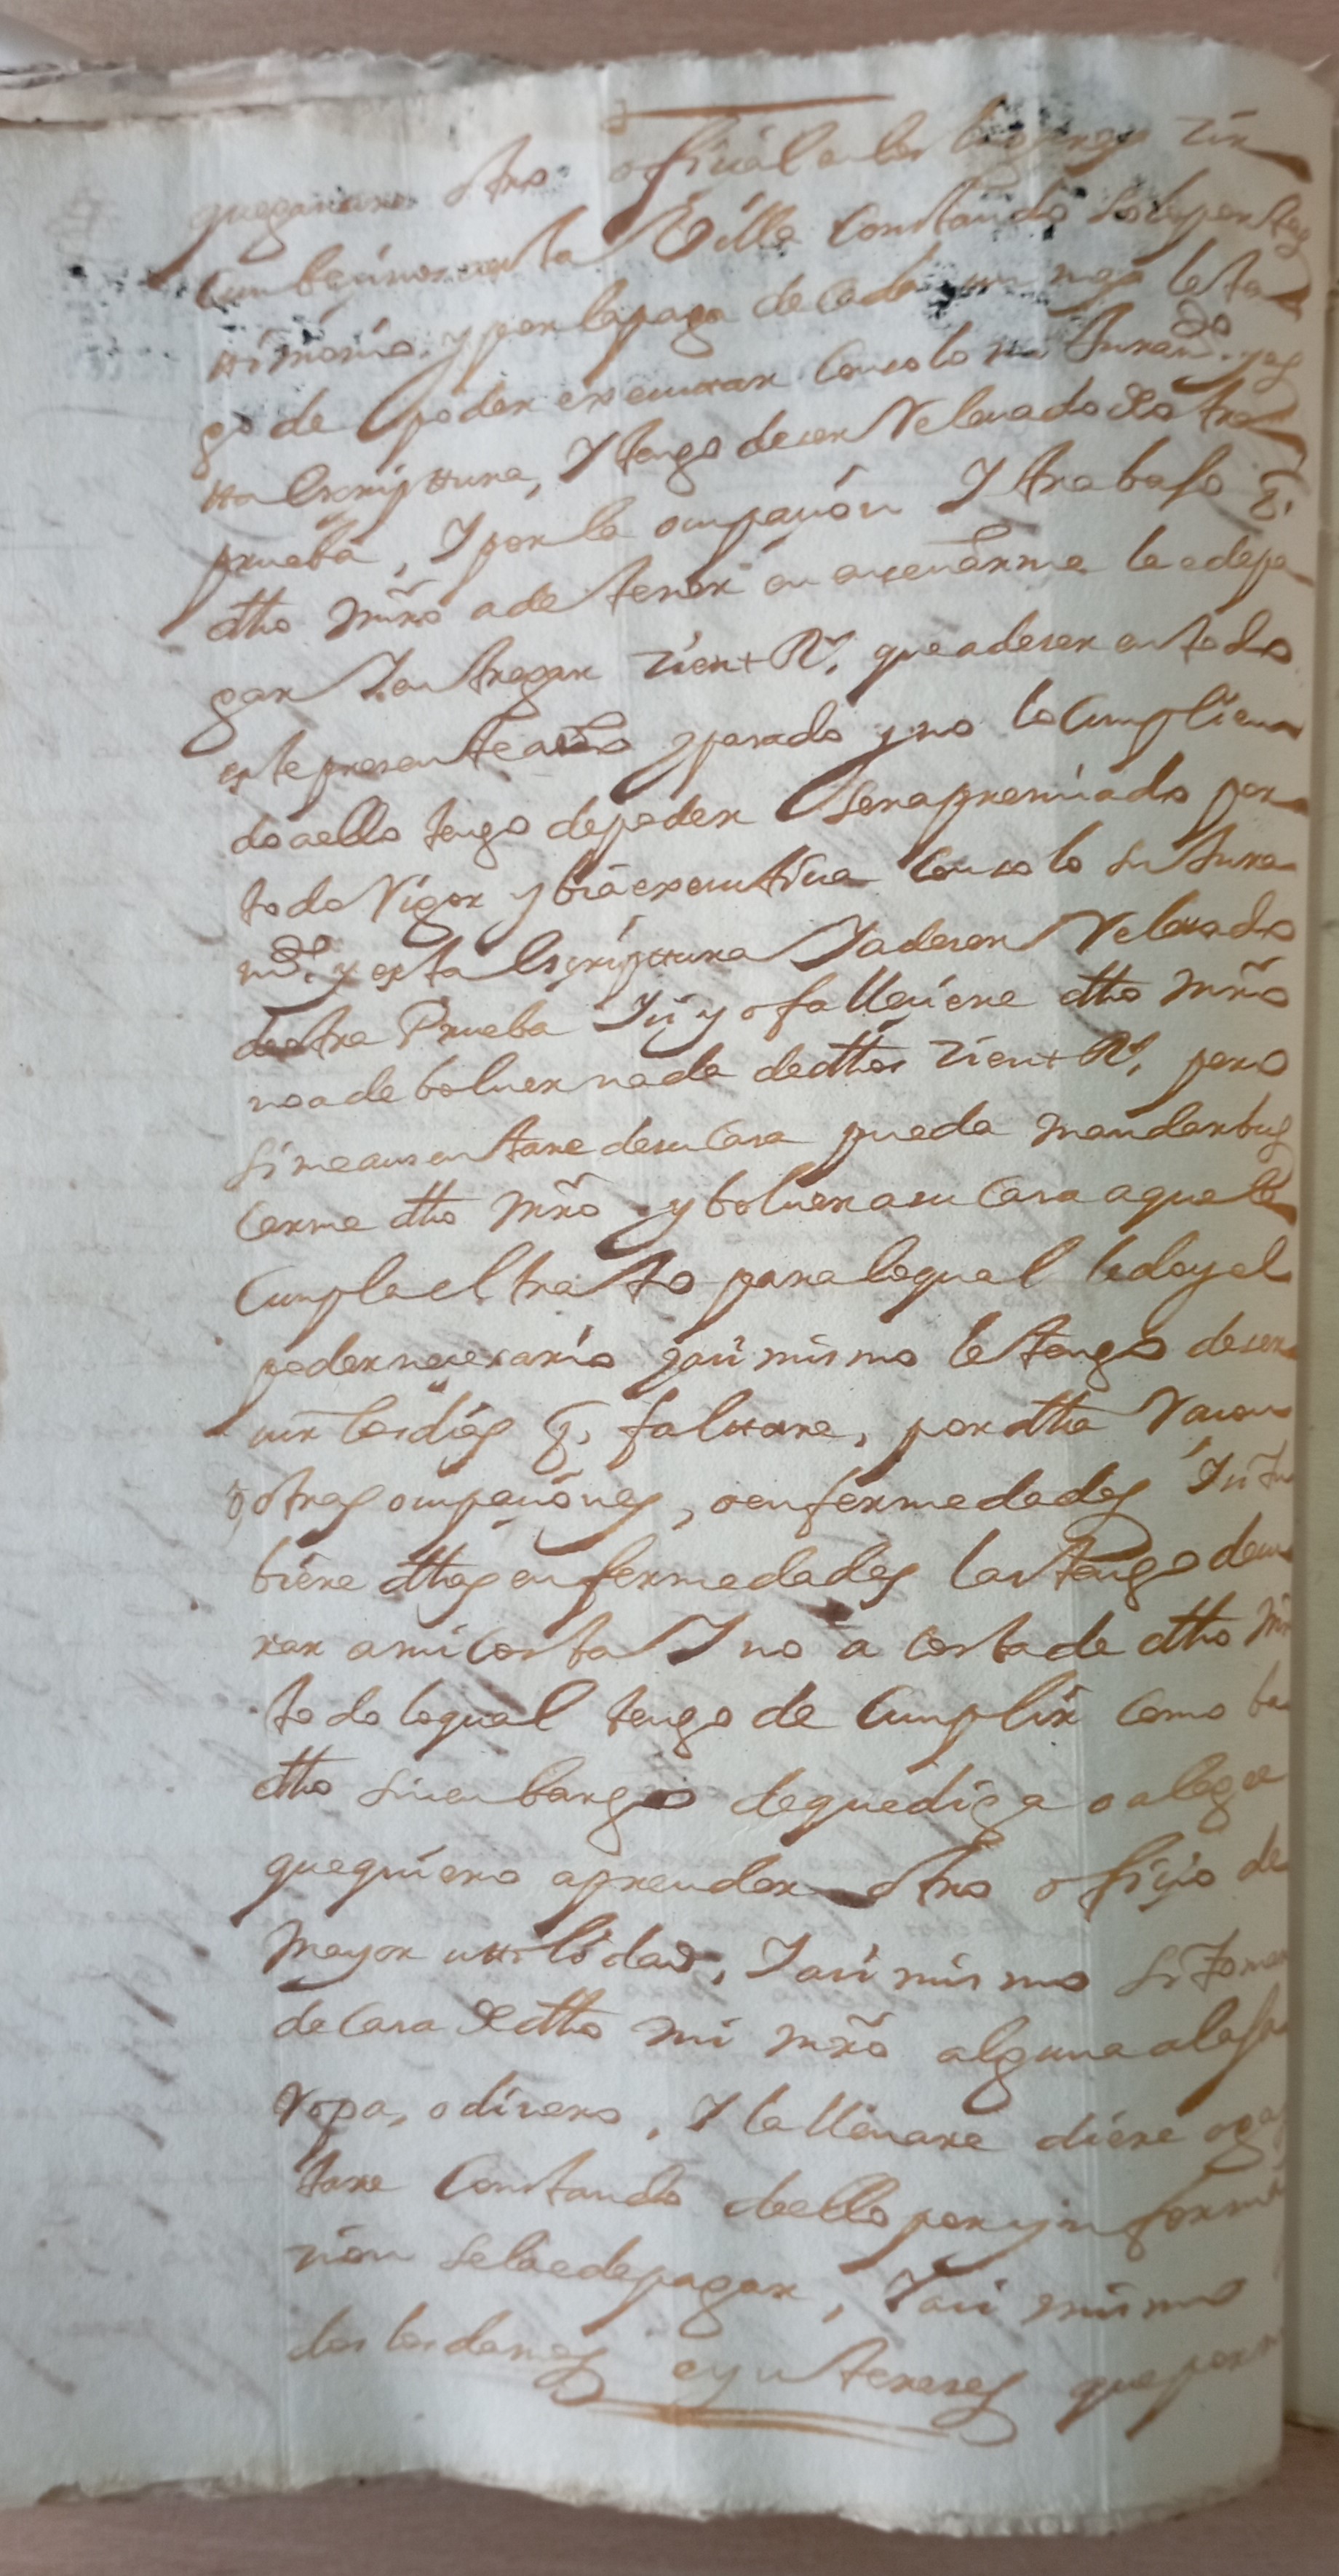 queganare otro oficial en los lugares zir
cumbecinos a esta Villa Constando solo por tes
ttimonio, y por la paga de cada un mes le ten
go de poder executar con solo su Juramdo. y es
tta Escripttura, Y tengo de ser Relevado de otra
prueba, Y por la ocupacion Y trabajo q.
dho Mro a de tener en enseñarme le e de pa
gar Y entregar zient Rs. que a de ser en todo
este presente año y pasado y no lo Cumplien
do a ello tengo de poder ser apremiado por
todo Rigor y bia executiva Con solo su Jura
mdo. y esta Escripttura Y a de ser Relevado
de otra Prueba Y si yo falleciere dho Mro
no a de bolver nada de dhos zient Rs. pero
si me ausentare de su Casa pueda mandar bus
carme dho Mro y bolver a su Casa a que le
Cumpla el trato para lo qual le doy el
poder necesario y asi mismo le tengo de ser
uir los dias q. falttare, por dha Raçon
o, otras ocupaciones, o enfermedades Y si tu
biere dhas enfermedades las tengo de cu
rar a mi costa Y no a costa de dho Mro
todo lo qual tengo de Cumplir Como ba
dho sin enbargo de que diga o alegue
que quiero aprender otro oficio de
Mayor uttilidad, Y asi mismo si tomare
de Casa de dho mi Mro alguna alaja
Ropa, o dinero, Y la lleuare diere o gas
tare Constando dello por ynforma
zion se lo e de pagar, Y asi mismo
dos los danos e yntereses que por